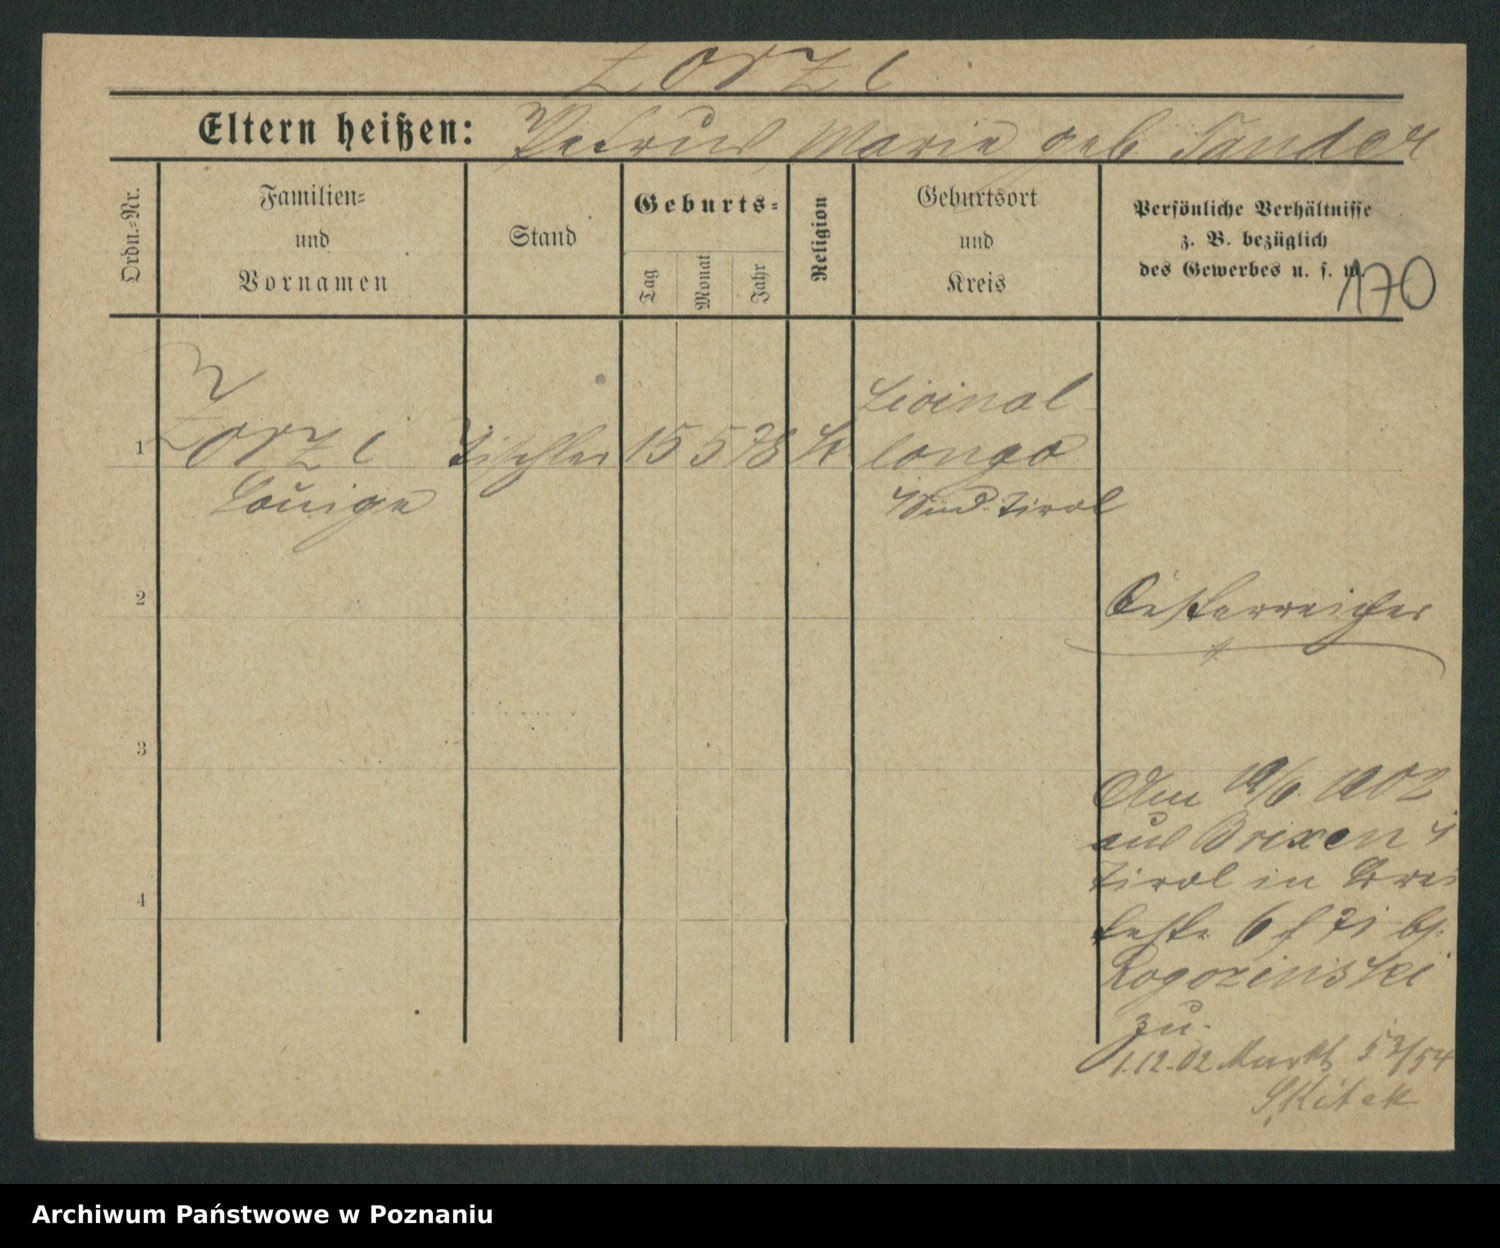 Zorzi
Eltern heißen: Petrus Marie geb. Sander
Ordn.-Nr.
Familien-
und
Vornamen
Stand
Geburts-
Tag
Monat
Jahr
Religion
Geburtsort
und
Kreis
Persönliche Verhältnisse
z. B. bezüglich
des Gewerbes u. s. w.
170
1
Zorzi
Tischler
15 5 78
K
Livinal-
longo
Süd-Tirol
2
Österreicher
3
Am 19/6. 1902
aus Brixen
Tirol in
4
6
Rogozinski
zu.
1.12.02 Markt 53/54
Skitek
Archiwum Państwowe w Poznaniu